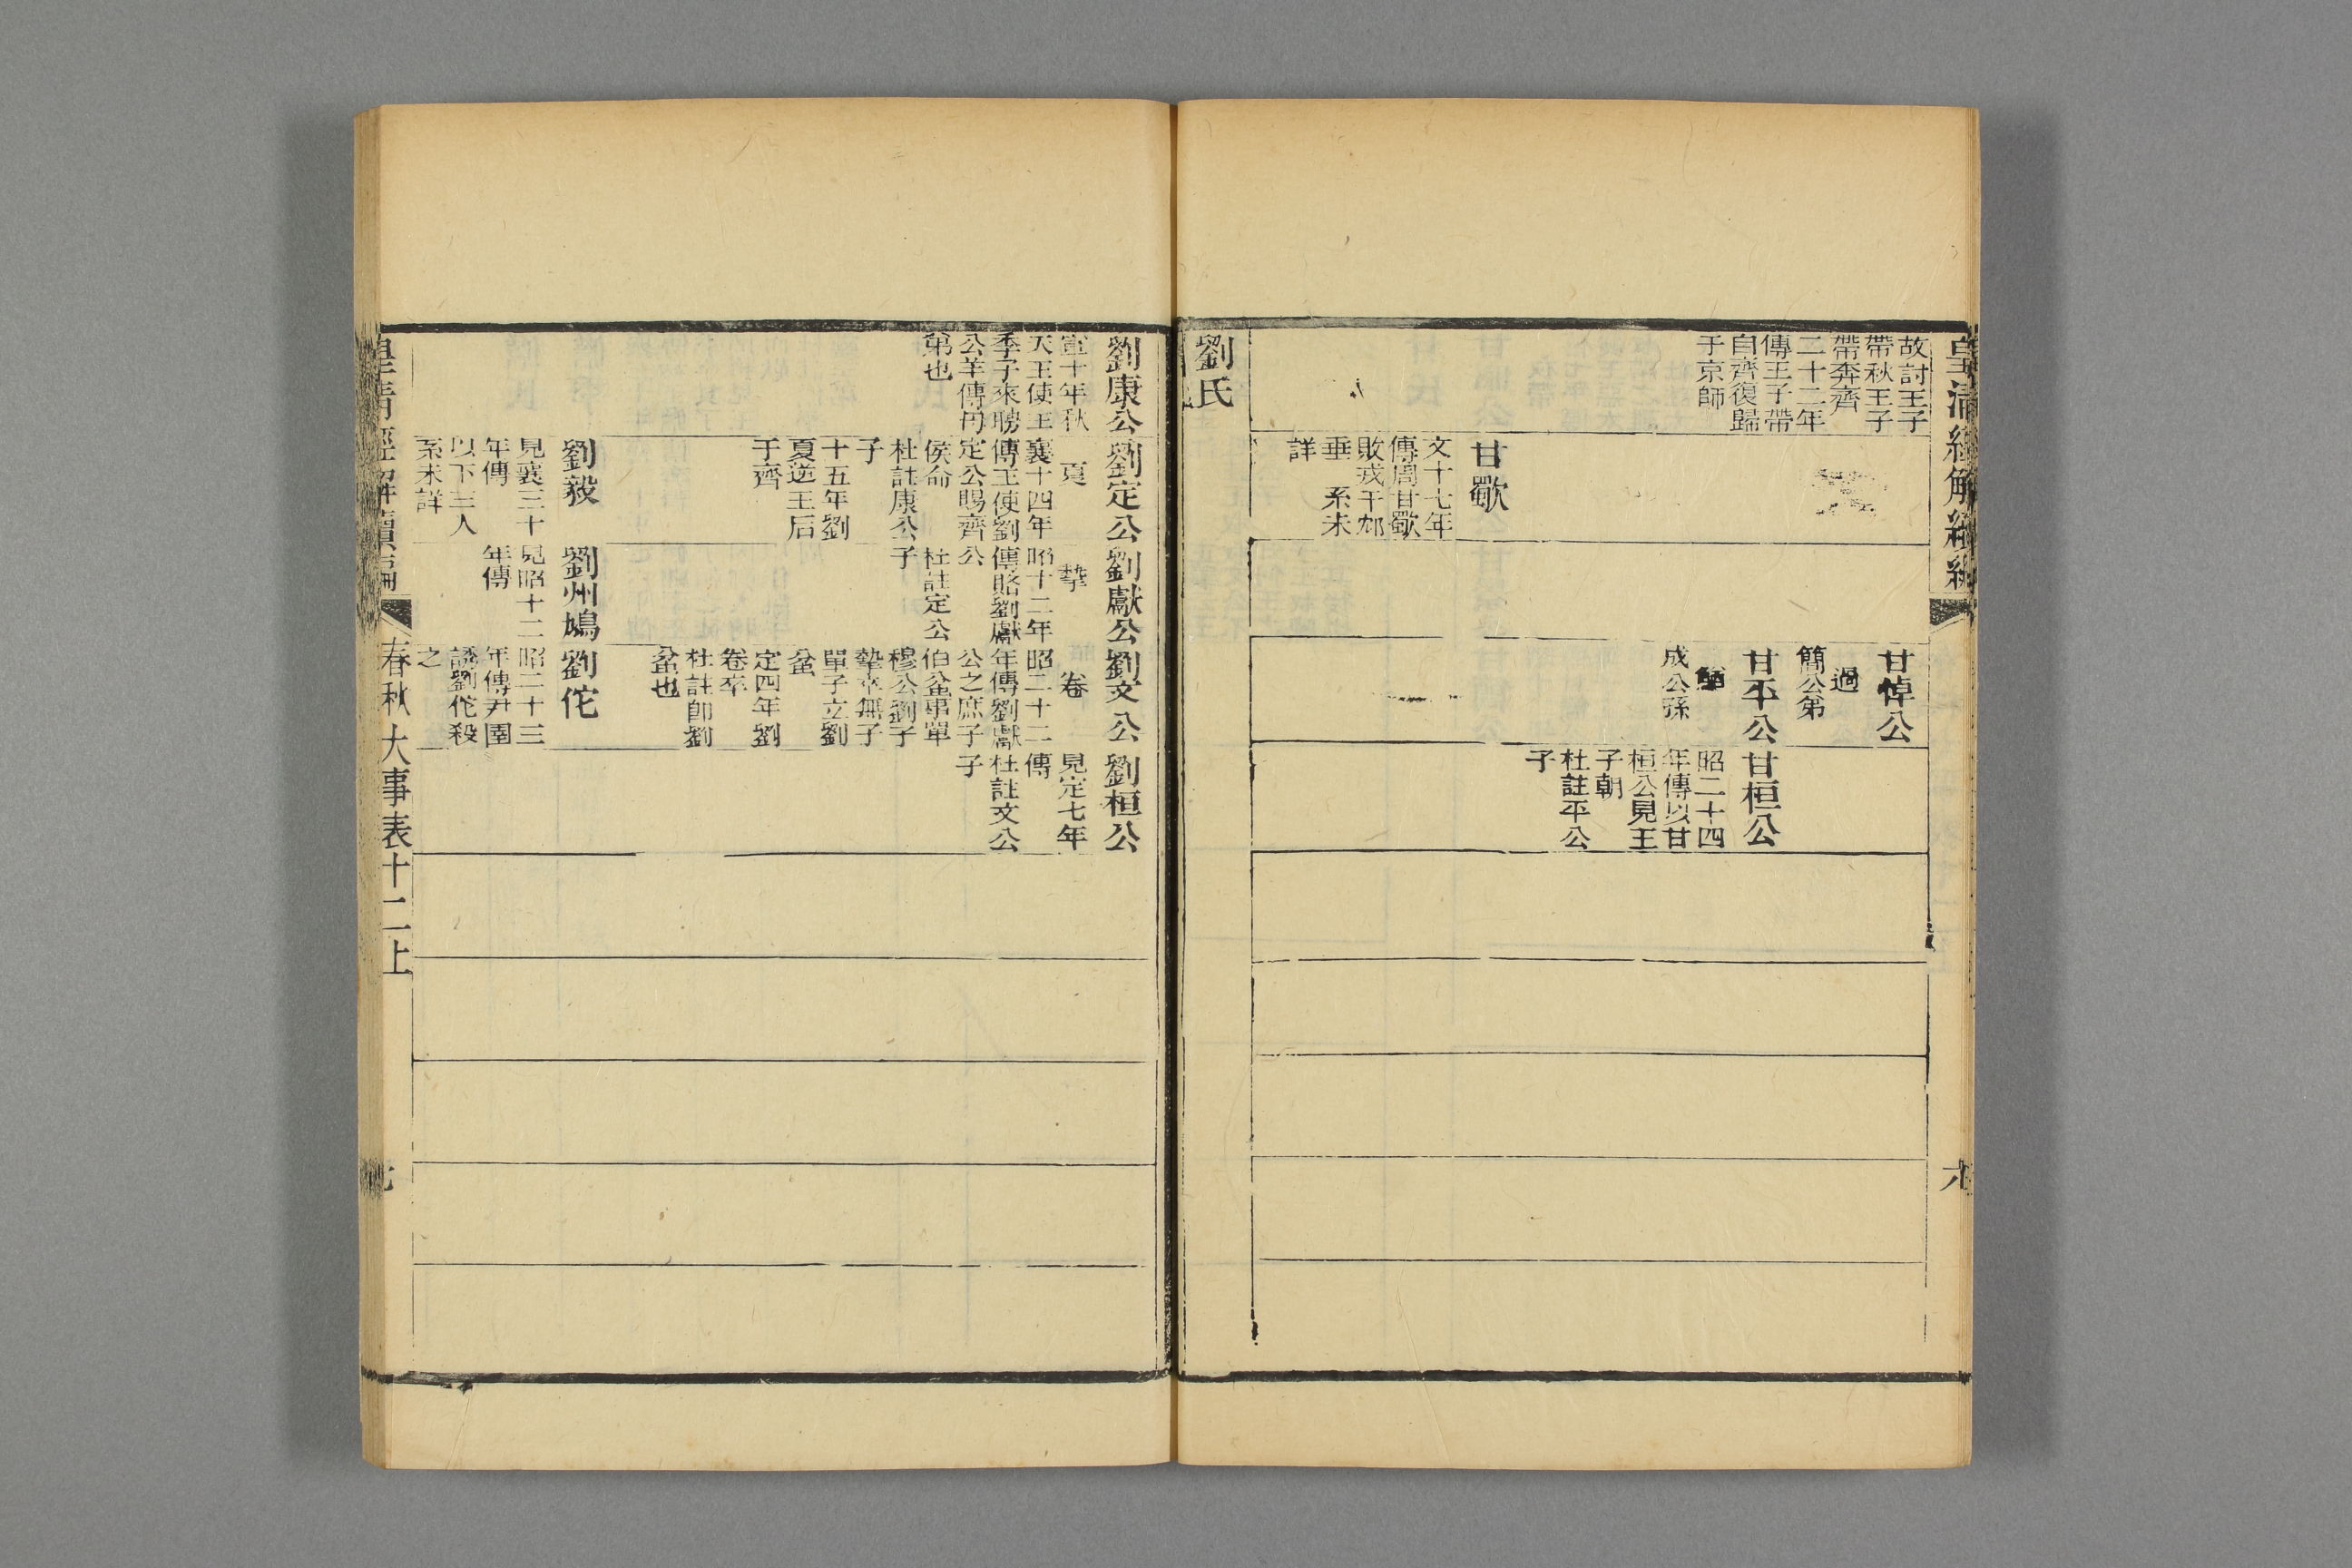 故討王子
帶秋王子
帶奔齊
二十二年
傳王子帶
自齊復歸
于京師
甘歜
文十七年
傳周甘歜
敗戎于邥
垂　系未
詳
甘悼公
過
簡公弟
甘平公
鰌
成公孫
甘桓公
昭二十四
年傳以甘
桓公見王
子朝
杜註平公
子
劉氏
劉康公
宣十年秋
天王使王
季子來聘
公羊傳母
弟也
劉定公
夏
襄十四年
傳王使劉
定公賜齊
侯命
杜註康公
子
十五年劉
夏逆王后
于齊
劉獻公
摯
昭十二年
傳賂劉獻
公
杜註定公
子
劉文公
卷
昭二十二
年傳劉獻
公之庶子
伯蚠事單
穆公劉子
摯卒無子
單子立劉
蚠
定四年劉
卷卒
杜註卽劉
蚠也
劉桓公
見定七年
傳
杜註文公
子
劉毅
見襄三十
年傳
以下三人
系未詳
劉州鳩
見昭十二
年傳
劉佗
昭二十三
年傳尹圉
誘劉佗殺
之
皇清經解續編
春秋大事表十二上